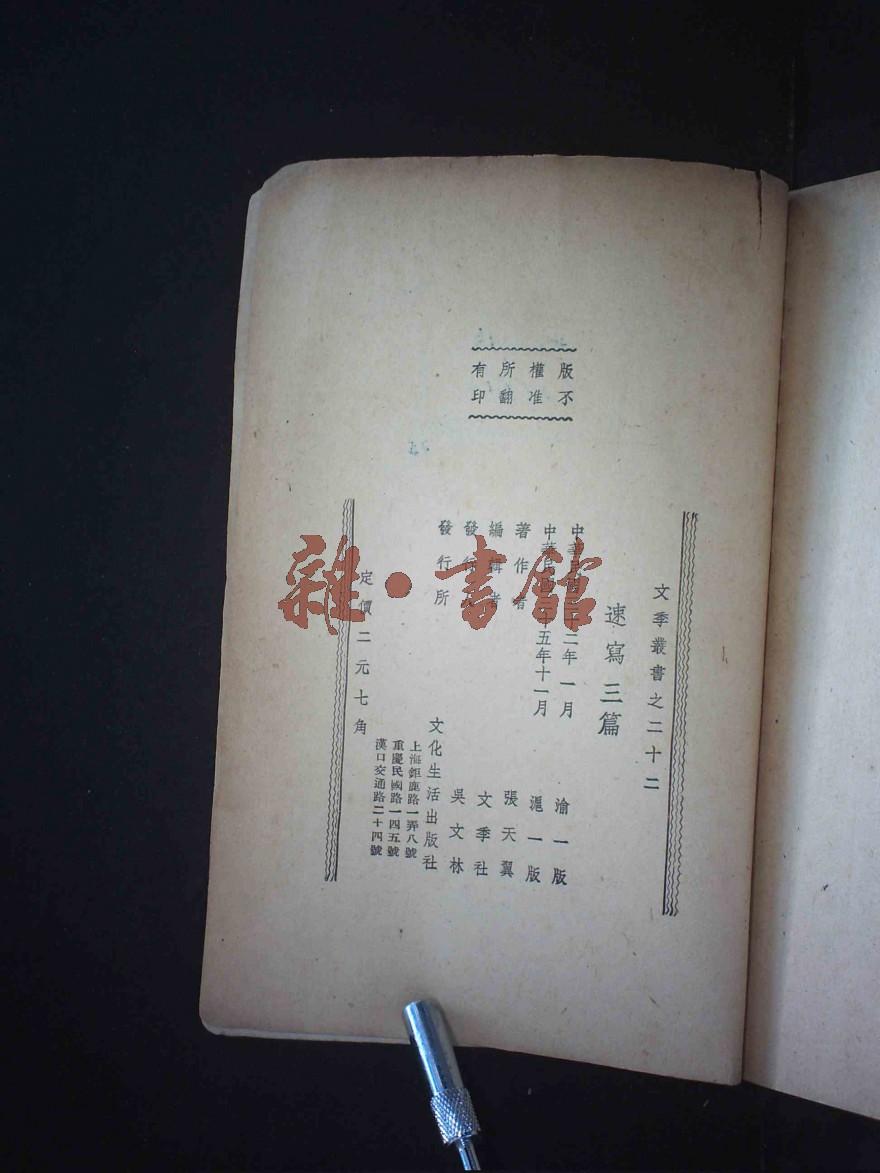 版權所有
不准翻印
文季叢書之二十二
速寫三篇
中華民國三十二年一月 渝一版
中華民國三十五年十一月 滬一版
著作者 張天翼
編輯者 文季社
發行人 吳文林
發行所 文化生活出版社
上海鉅鹿路一弄八號
重慶民國路一四五號
漢口交通路二十四號
定價二元七角
雜·書館